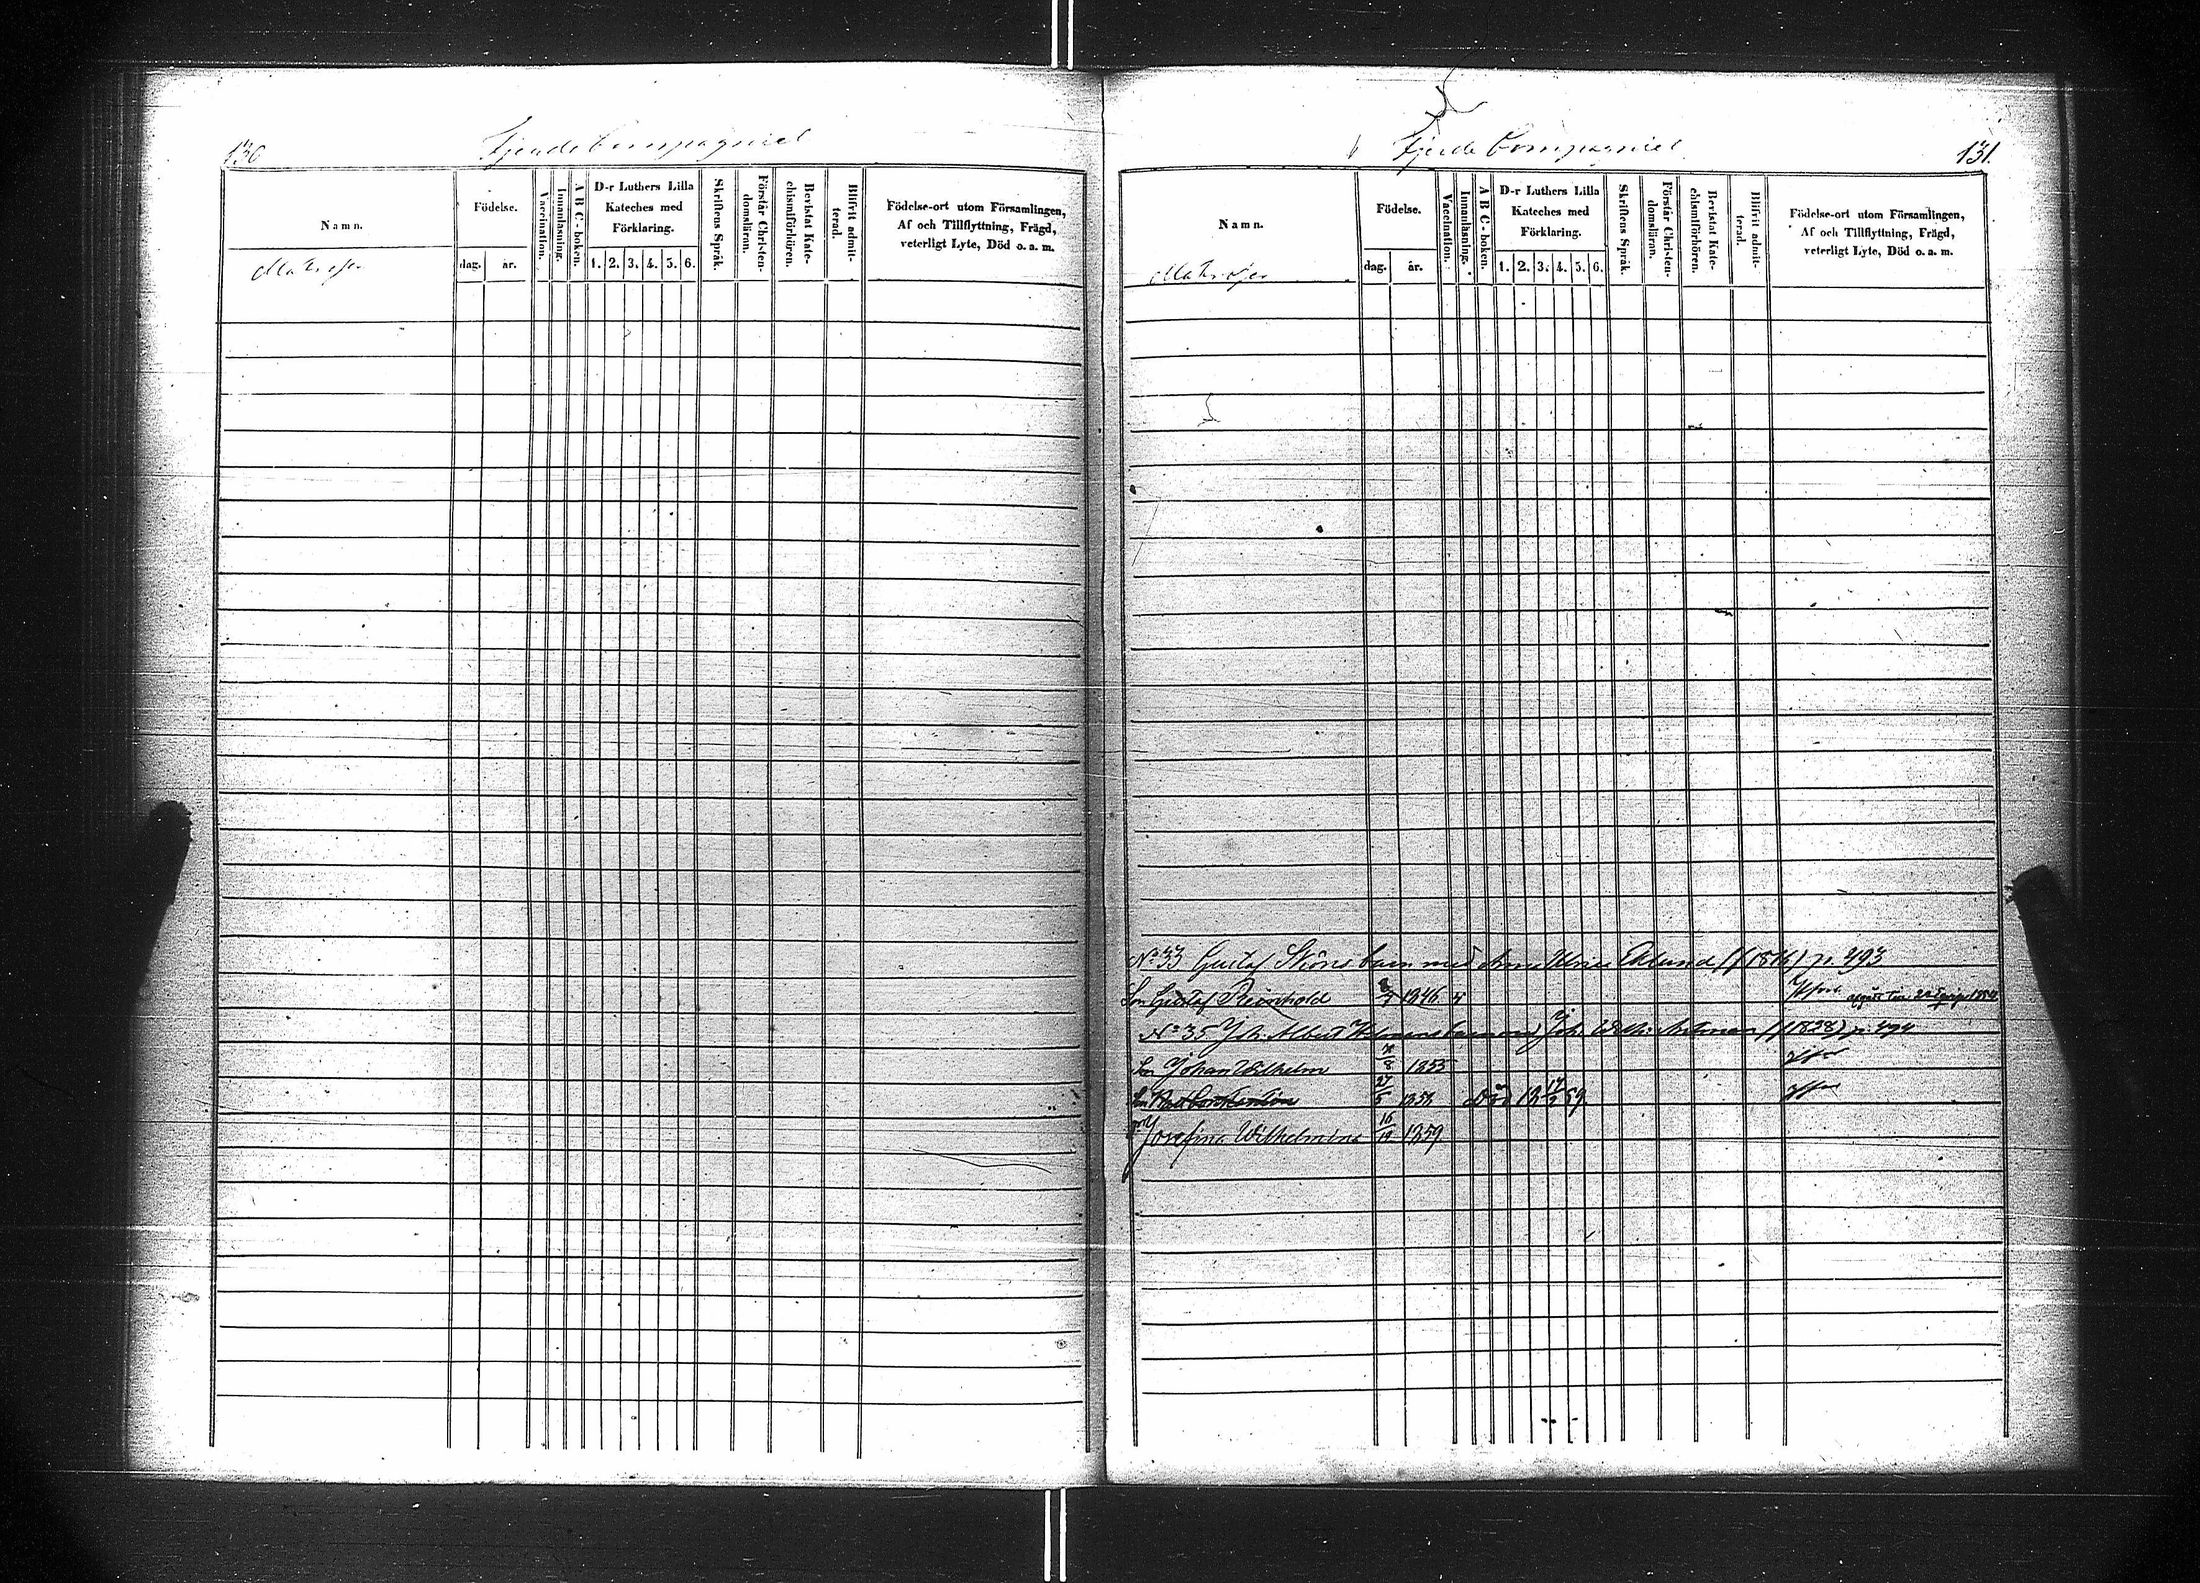 130
Fjerde Compagniet
Namn.
Matroser
Födelse.
dag. år.
Vaccination.
Innanläsning.
A B C-boken.
D-r Luthers Lilla
Kateches med
Förklaring.
1. 2. 3. 4. 5. 6.
Skriftens Språk.
Förstår Christen-
domsläran.
Bevistat Kate-
chismiförhören.
Blifvit admit-
terad.
Födelse-ort utom Församlingen,
Af och Tillflyttning, Frägd,
veterligt Lyte, Död o. a. m.
131.
Fjerde Compagniet
Namn.
Matroser
Födelse.
dag. år.
Vaccination.
Innanläsning.
A B C-boken.
D-r Luthers Lilla
Kateches med
Förklaring.
1. 2. 3. 4. 5. 6.
Skriftens Språk.
Förstår Christen-
domsläran.
Bevistat Kate-
chismiförhören.
Blifvit admit-
terad.
Födelse-ort utom Församlingen,
Af och Tillflyttning, Frägd,
veterligt Lyte, Död o. a. m.
No 33 Gustaf Sköns barn med Anna Ulrica Eklund (f 1816) p. 493
Son Gustaf Reinhold 1846
No 35 Joh. Albert (f 1828) p. 494
Son Johan Wilhelm 1855
Son 27/5 1858 Död 59
Josefina Wilhelmina 16/12 1859